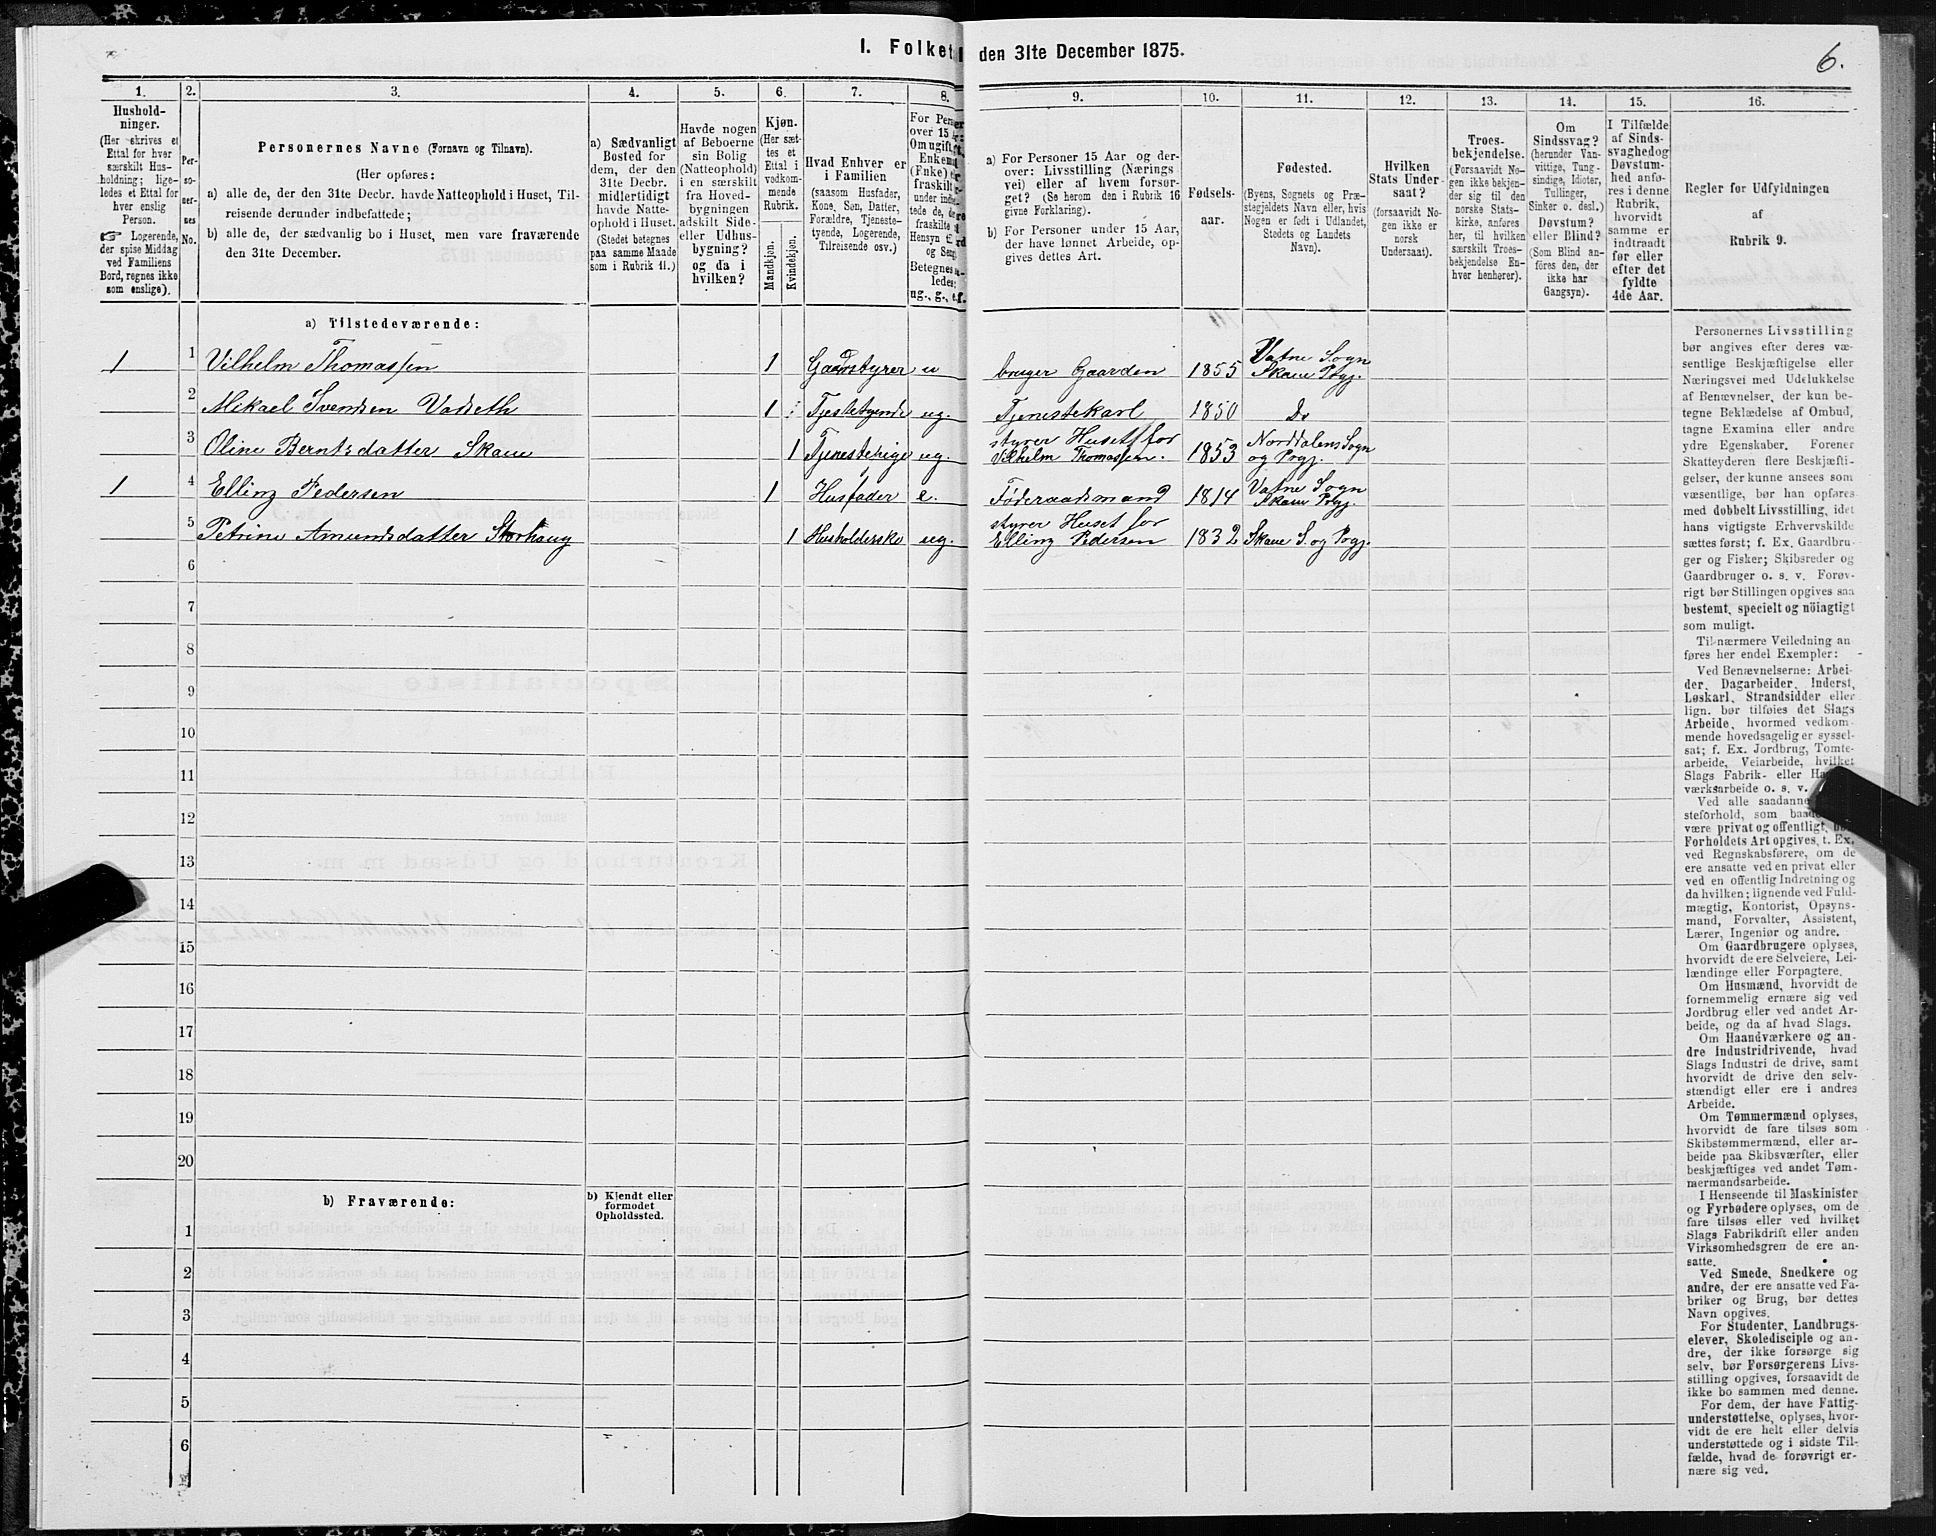 I. Folket
den 31te December 1875.
6.
1.
2.
3.
4.
5.
6.
7.
8.
9.
10.
11.
12.
13.
14.
15.
16.
Hushold-
ninger.
(Her skrives et
Ettal for hver
særskilt Hus-
holdning; lige-
ledes et Ettal for
hver enslig
Person.
Logerende,
der spise Middag
ved Familiens
Bord, regnes ikke
som enslige).
Per-
so-
ner-
nes
No.
Personernes Navne (Fornavn og Tilnavn).
(Her opføres:
a) alle de, der den 31te Decbr. havde Natteophold i Huset, Til-
reisende derunder indbefattede;
b) alle de, der sædvanlig bo i Huset, men vare fraværende
den 31te December.
a) Sædvanligt
Bosted for
dem, der den
31te Decbr.
midlertidigt
havde Natte-
ophold i Huset.
(Stedet betegnes
paa samme Maade
som i Rubrik 11.)
Havde nogen
af Beboerne
sin Bolig
(Natteophold)
i en særskilt
fra Hoved-
bygningen
adskilt Side-
eller Udhus-
bygning?
og da i
hvilken?
Kjøn.
(Her sæt-
tes et
Ettal i
vedkom-
mende
Rubrik.
Mandkjøn.
Kvindekjøn.
Hvad Enhver er
i Familien
(saasom Husfader,
Kone, Søn, Datter,
Forældre, Tjeneste-
tyende, Logerende,
Tilreisende osv.)
a) For Personer 15 Aar og der-
over: Livsstilling (Nærings
vei) eller af hvem forsør-
get? (Se herom den i Rubrik 16
givne Forklaring).
b) For Personer under 15 Aar,
der have lønnet Arbeide, op-
gives dettes Art.
Fødsels-
aar.
Fødested.
(Byens, Sognets og Præ-
stegjeldets Navn eller, hvis
Nogen er født i Udlandet,
Stedets og Landets
Navn).
Hvilken
Stats Under-
saat?
(forsaavidt No-
gen ikke er
norsk
Undersaat).
Troes-
bekjendelse.
(Forsaavidt No-
gen ikke bekjen-
der sig til den
norske Stats-
kirke, anføres
her, til hvilken
særskilt Troes-
bekjendelse En-
hver henhører).
Om
Sindssvag?
(herunder Van-
vittige, Tung-
sindige, Idioter,
Tullinger,
Sinker o. desl.)
Døvstum?
eller Blind?
(Som Blind an-
føres den, der
ikke har
Gangsyn).
I Tilfælde
af Sinds-
svaghed og
Døvstum-
hed anfø-
res i denne
Rubrik,
hvorvidt
samme er
indtraadt
før eller
efter det
fyldte
4de Aar.
Regler for Udfyldningen
af
Rubrik 9.
a) Tilstedeværende:
1 1 Vilhelm Thomassen 1 Gaardstyrer u bruger Gaarden 1855 Vatne Sogn Skaue Pgj.
2 Mikael Svendsen Vadseth 1 Tjenestetyende ug. Tjenestekarl 1850 Do
3 Oline Berntsdatter Skaue 1 Tjenestepige ug. styrer Huset for Vilhelm Thomassen. 1853 Norddalens Sogn og Pgj.
1 4 Elling Pedersen 1 Husfader e. Føderaadsmand 1814 Vatne Sogn Skaue Pgj.
5 Petrine Amundsdatter Storhaug 1 Husholderske ug. styrer Huset for Elling Pedersen 1832 Skaue S. og Pgj.
6
7
8
9
10
11
12
13
14
15
16
17
18
19
20
b) Fraværende:
b) Kjendt eller
formodet
Opholdssted.
1
2
3
4
5
6
Personernes Livsstilling
bør angives efter deres væ-
sentlige Beskjæftigelse eller
Næringsvei med Udelukkelse
af Benævnelser, der kun be-
tegne Beklædelse af Ombud,
tagne Examina eller andre
ydre Egenskaber. Forener
Skatteyderen flere Beskjæfti-
gelser, der kunne ansees som
væsentlige, bør han opføres
med dobbelt Livsstilling, idet
hans vigtigste Erhvervskilde
sættes først; f. Ex. Gaardbru-
ger og Fisker; Skibsreder og
Gaardbruger o. s. v. Forøv-
rigt bør Stillingen opgives saa
bestemt, specielt og nøiagtigt
som muligt.
Til nærmere Veiledning an
føres her endel Exempler:
Ved Benævnelserne: Arbei-
der, Dagarbeider, Inderst,
Løskarl, Strandsidder eller
lign. bør tilføies det Slags
Arbeide, hvormed vedkom-
mende hovedsagelig er syssel-
sat; f. Ex. Jordbrug, Tomte-
arbeide, Veiarbeide, hvilket
Slags Fabrik- eller
værksarbeide o. s. v.
Ved alle saadanne
steforhold, som
være privat og offentligt,
Forholdets Art opgives, t. Ex.
ved Regnskabsførere, om de
ere ansatte ved en privat eller
ved en offentlig Indretning og
da hvilken; lignende ved Fuld-
mægtig, Kontorist, Opsyns-
mand, Forvalter, Assistent,
Lærer, Ingeniør og andre.
Om Gaardbrugere oplyses,
hvorvidt de ere Selveiere, Lei-
lændinge eller Forpagtere.
Om Husmænd, hvorvidt de
fornemmelig ernære sig ved
Jordbrug eller ved andet Ar-
beide, og da af hvad Slags.
Om Haandværkere og an-
dre Industridrivende, hvad
Slags Industri de drive, samt
hvorvidt de drive den selv-
stændigt eller ere i andres
Arbeide.
Om Tømmermænd oplyses,
hvorvidt de fare tilsøs som
Skibstømmermænd, eller ar-
beide paa Skibsværfter, eller
beskjæftiges ved andet Tøm-
mermandsarbeide.
I Henseende til Maskinister
og Fyrbødere oplyses, om de
fare tilsøs eller ved hvilket
Slags Fabrikdrift eller anden
Virksomhedsgren de ere an-
satte.
Ved Smede, Snedkere og
andre, der ere ansatte ved Fa-
briker og Brug, bør dettes
Navn opgives.
For Studenter, Landbrugs-
elever, Skoledisciple og an-
dre, der ikke forsørge sig
selv, bør Forsørgerens Livs-
stilling opgives, forsaavidt de
ikke bo sammen med denne.
For dem, der have Fattig-
understøttelse, oplyses, hvor-
vidt de ere helt eller delvis
understøttede og i sidste Til-
fælde, hvad de forøvrigt er-
nære sig ved.